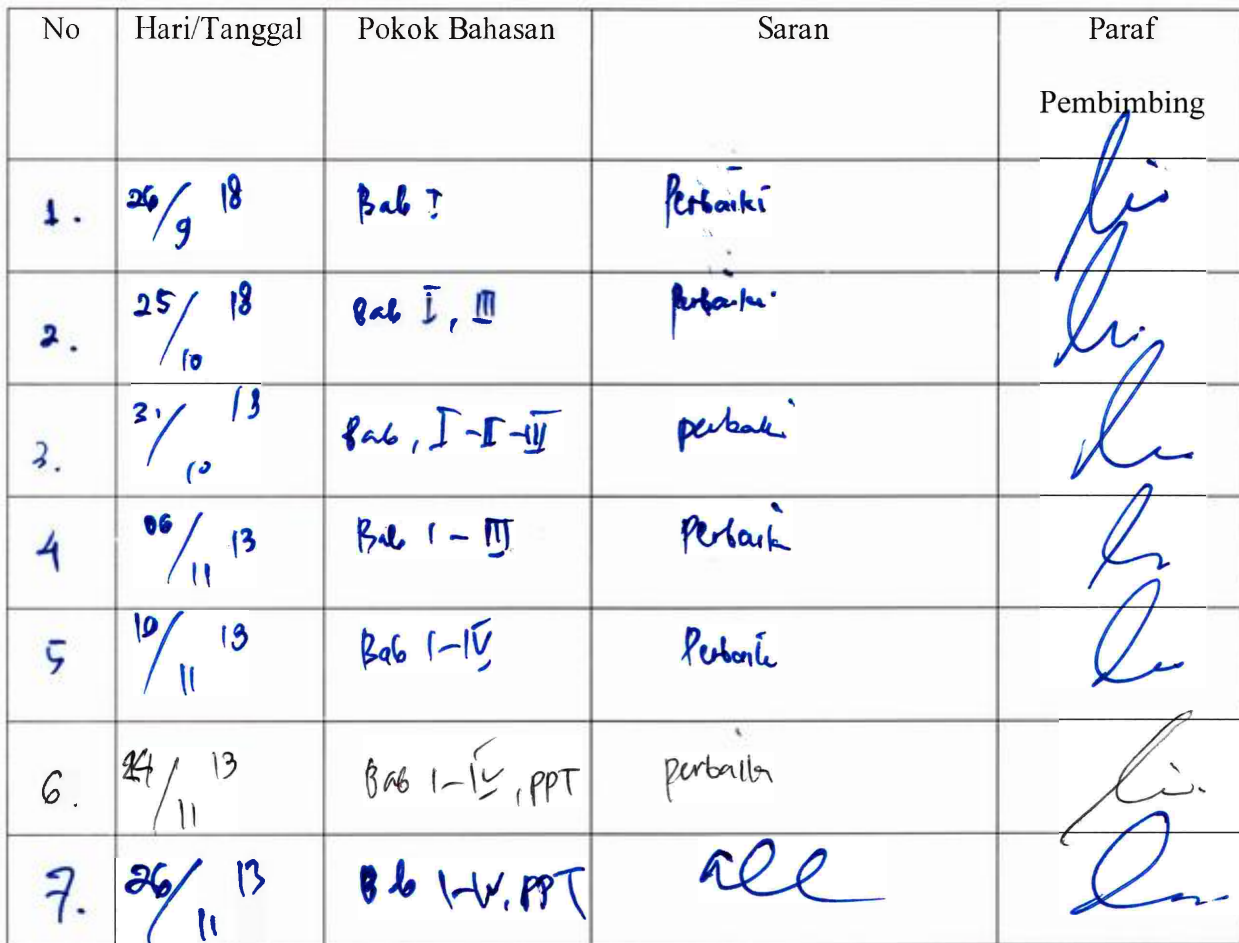 No Hari/Tanggal Pokok Bahasan Saran Paraf
Pembimbing
1. 26/9 18 Bab I Perbaiki
2. 25/10 18 Bab I, III Perbaiki
3. 31/10 13 Bab, I-II-III perbaiki
4 06/11 13 Bab I - III Perbaik
5 10/11 13 Bab I-IV Perbaik
6. 24/11 13 Bab I-IV, PPT perbaiki
7. 26/11 13 Bab I-IV, PPT acc